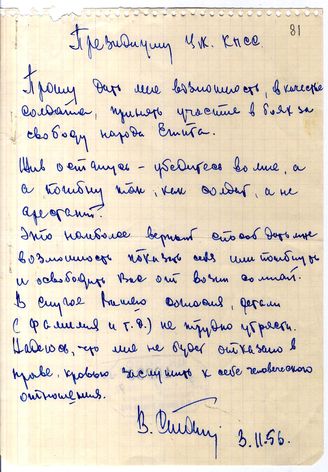 81
Президиуму Ц.К. КПСС.
Прошу дать мне возможность, в качестве
солдата, принять участие в боях за
свободу народа Египта.
Жив останусь - убедитесь во мне, а
а погибну так, как солдат, а не
арестант.
Это наиболее верный способ дать мне
возможность показать себя или погибнуть
и освободить Вас от возни со мной.
В случае Вашего согласия, детали
(фамилия и т.д.) не трудно утрясти.
Надеюсь, что мне не будет отказано в
праве, кровью заслужить к себе человеческого
отношения.
В. Сталин
3.11.56.